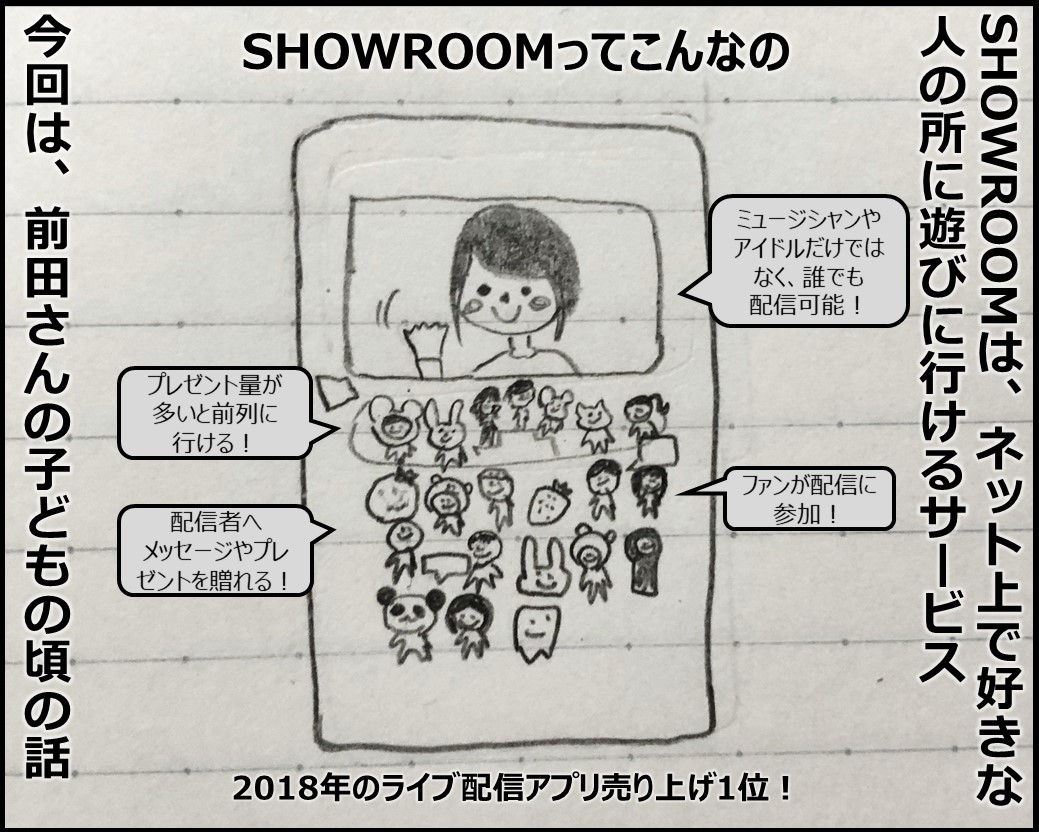 SHOWROOMは、ネット上で好きな
人の所に遊びに行けるサービス
SHOWROOMってこんなの
ミュージシャンや
アイドルだけでは
なく、誰でも
配信可能！
プレゼント量が
多いと前列に
行ける！
ファンが配信に
参加！
配信者へ
メッセージやプレ
ゼントを贈れる！
2018年のライブ配信アプリ売り上げ1位！
今回は、前田さんの子どもの頃の話